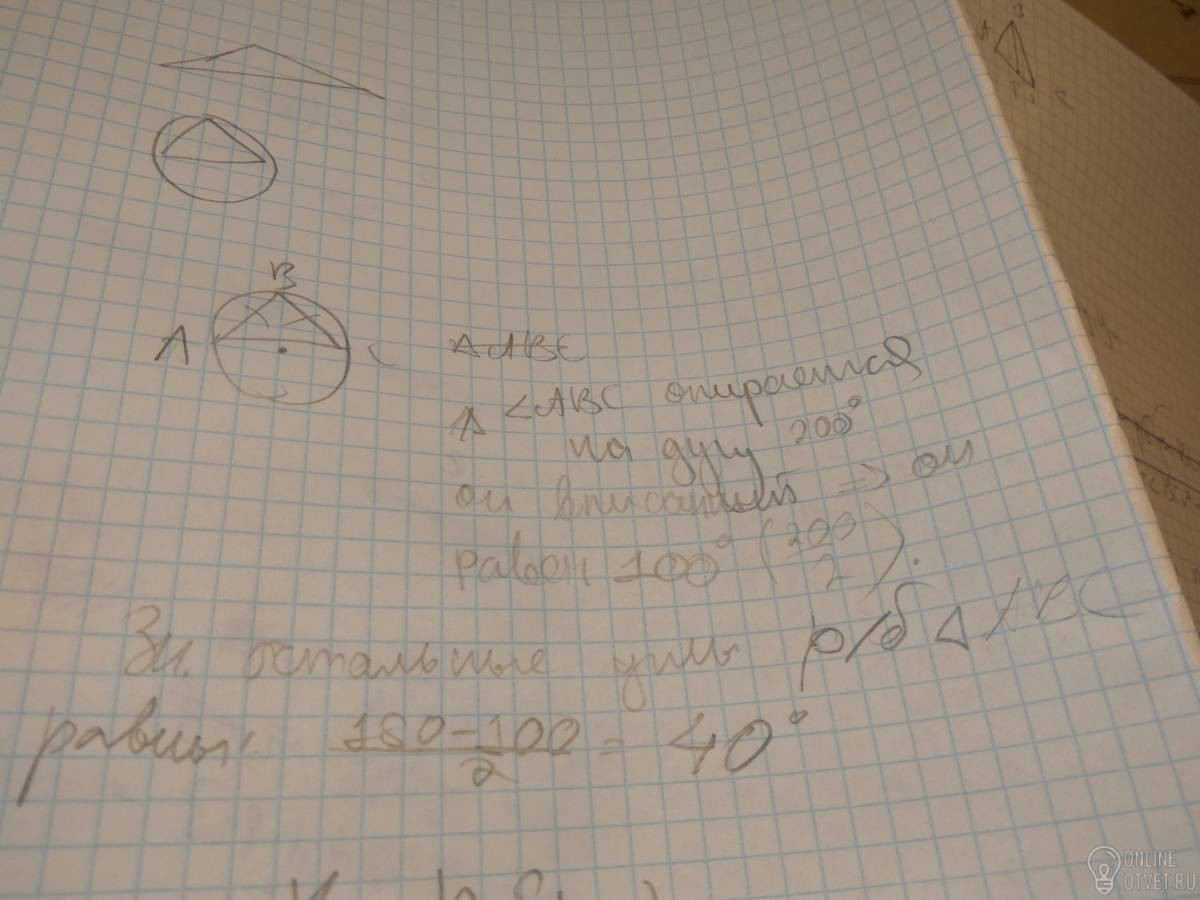 B
A
C
B
A C
∠ABC опирается
на дугу 200°
он вписанный => он
равен 100° (200/2).
Зн. остальные углы р/б △ ABC
равны: 180-100/2 = 40°
ONLINE
OTVET.RU